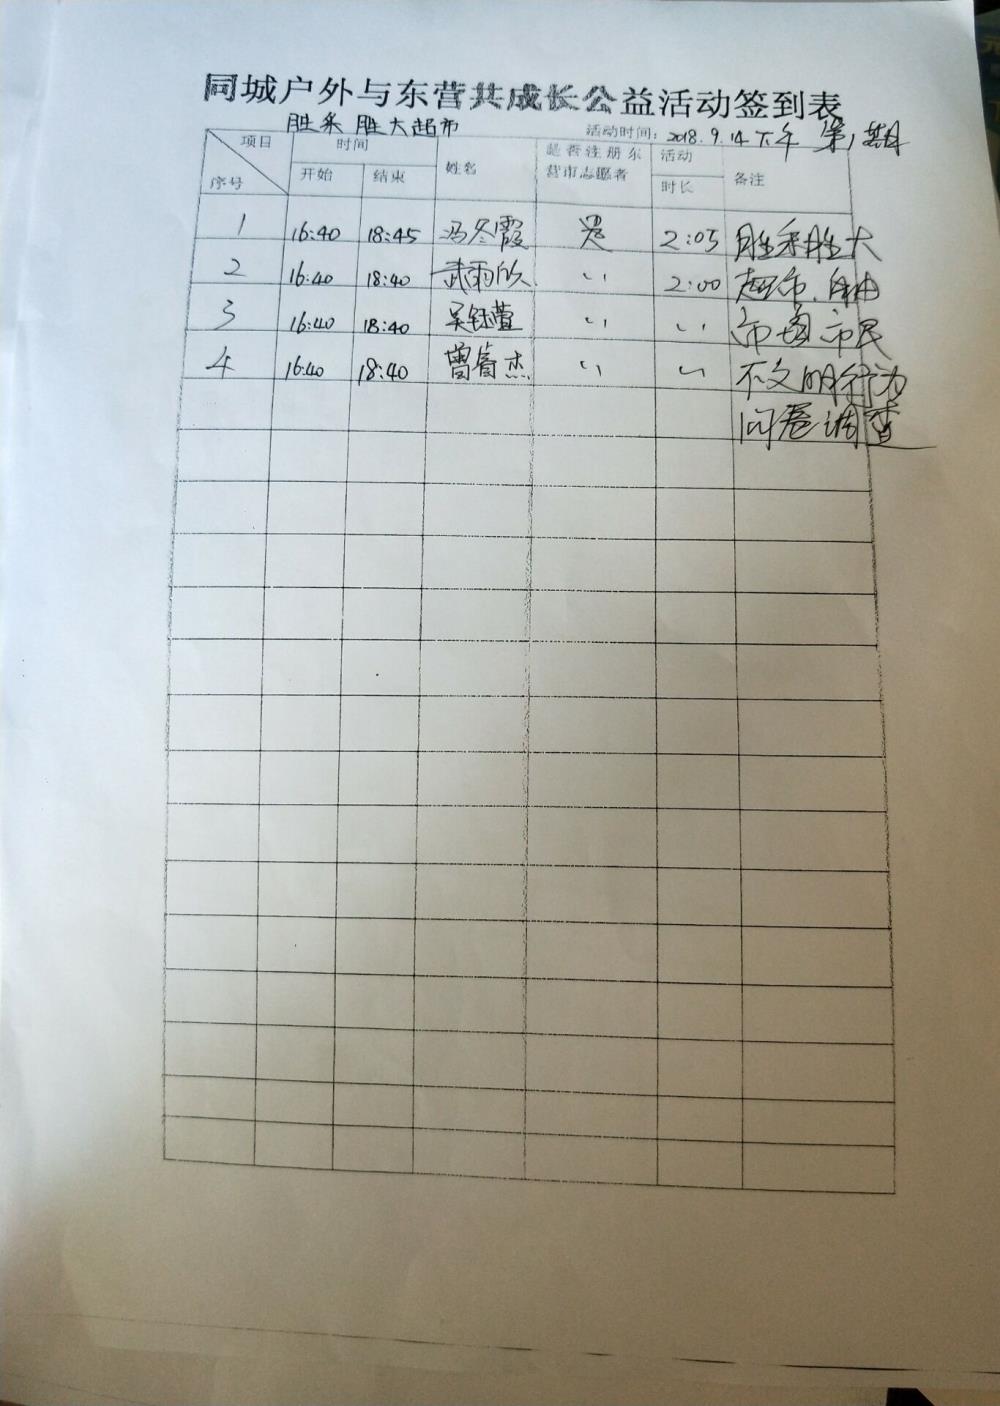 同城户外与东营共成长公益活动签到表
胜采 胜大超市 活动时间: 2018.9.14下午 第1期
项目 时间 姓名 是否注册东 活动 备注
序号 开始 结束 营市志愿者 时长
1 16:40 18:45 冯冬霞 是 2:05 胜采胜大
2 16:40 18:40 武雨欣 〃 2:00 超市、自由
3 16:40 18:40 吴钰萱 〃 〃 市场市民
4 16:40 18:40 曾睿杰 〃 〃 不文明行为
问卷调查